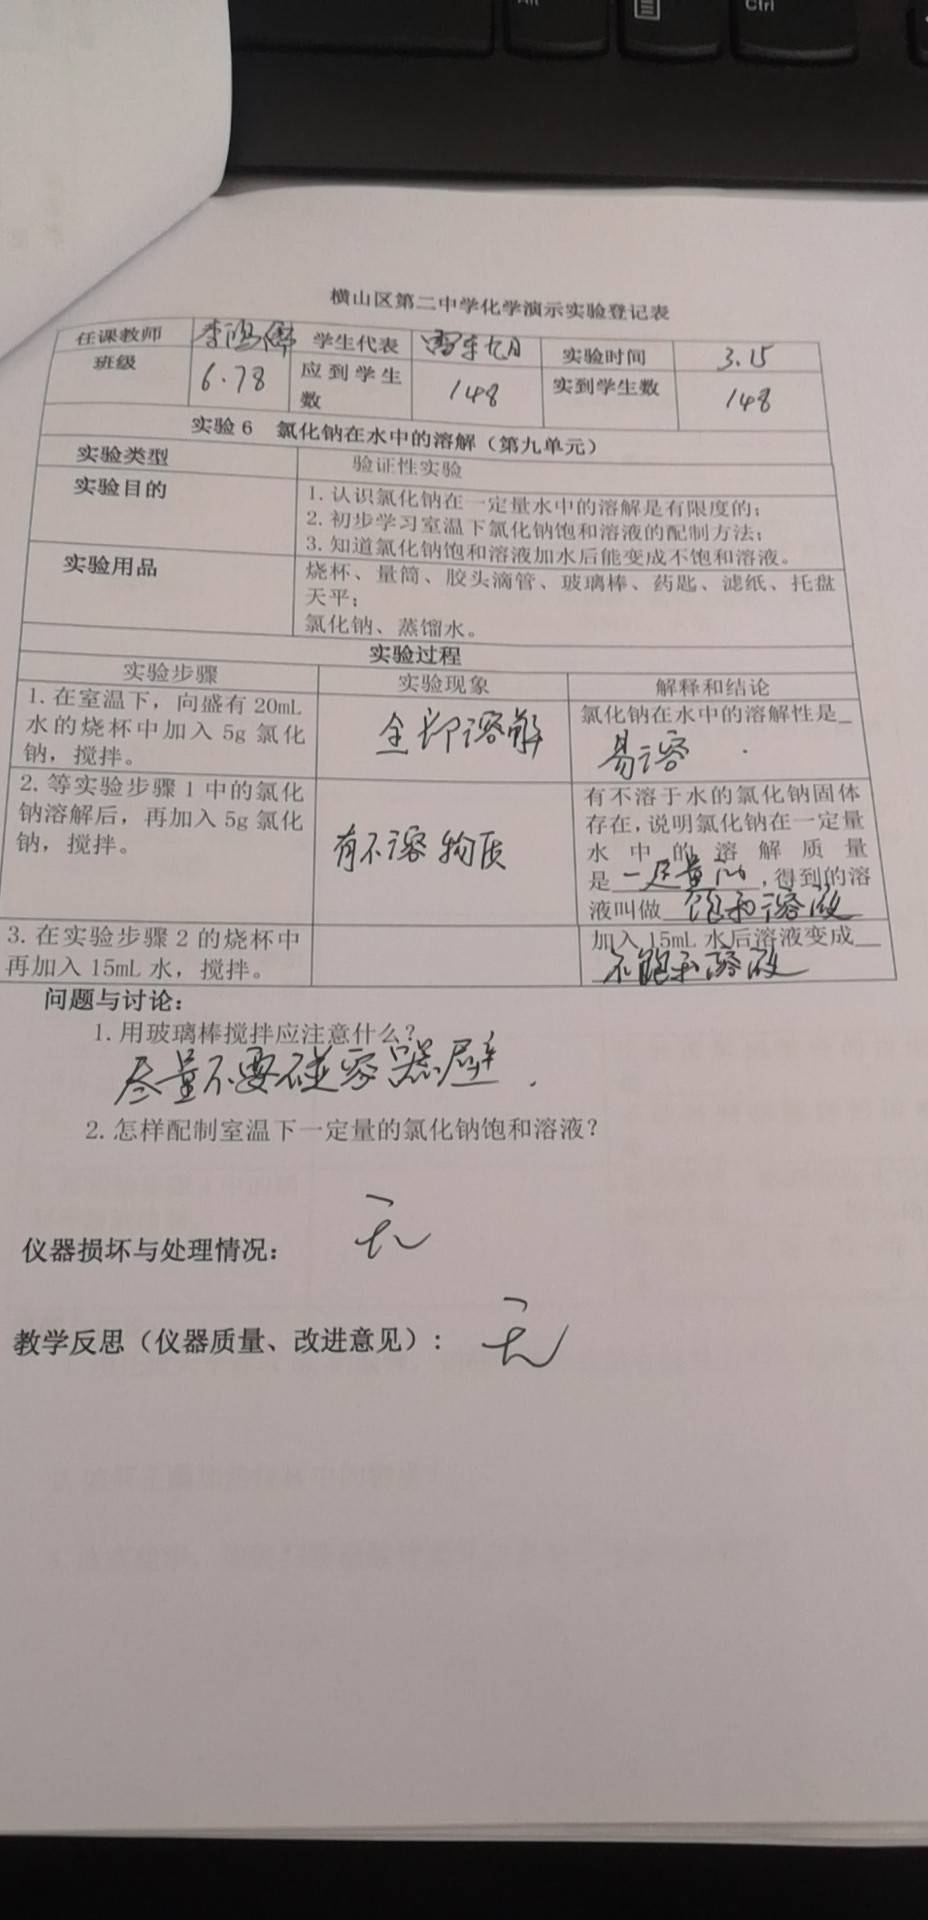 Ctrl
横山区第二中学化学演示实验登记表
任课教师 学生代表 实验时间 3.15
班级 6.78 应到学生数 148 实到学生数 148
实验 6 氯化钠在水中的溶解（第九单元）
实验类型 验证性实验
实验目的 1. 认识氯化钠在一定量水中的溶解是有限度的；
2. 初步学习室温下氯化钠饱和溶液的配制方法；
3. 知道氯化钠饱和溶液加水后能变成不饱和溶液。
实验用品 烧杯、量筒、胶头滴管、玻璃棒、药匙、滤纸、托盘
天平；
氯化钠、蒸馏水。
实验过程
实验步骤 实验现象 解释和结论
1. 在室温下，向盛有 20mL
水的烧杯中加入 5g 氯化
钠，搅拌。
全部溶解
氯化钠在水中的溶解性是
易溶
2. 等实验步骤 1 中的氯化
钠溶解后，再加入 5g 氯化
钠，搅拌。
有不溶物质
有不溶于水的氯化钠固体
存在，说明氯化钠在一定量
水中的溶解质量
是 一定量的，得到的溶
液叫做 饱和溶液
3. 在实验步骤 2 的烧杯中
再加入 15mL 水，搅拌。
加入 15mL 水后溶液变成
不饱和溶液
问题与讨论：
1. 用玻璃棒搅拌应注意什么？
尽量不要碰容器壁.
2. 怎样配制室温下一定量的氯化钠饱和溶液？
仪器损坏与处理情况： 无
教学反思（仪器质量、改进意见）： 无